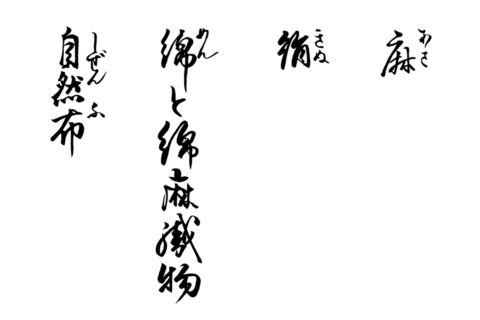 麻
あさ
絹
きぬ
綿と綿麻織物
めん
自然布
しぜんふ